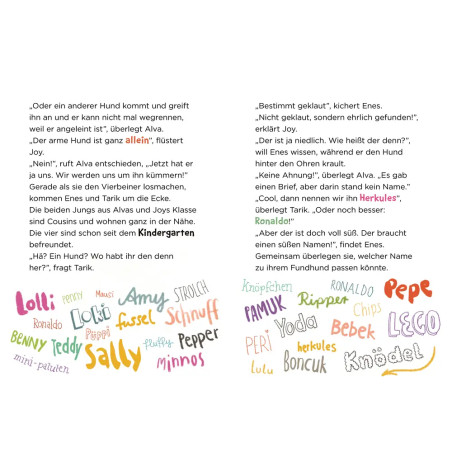 „Oder ein anderer Hund kommt und greift
ihn an und er kann nicht mal wegrennen,
weil er angeleint ist“, überlegt Alva.
„Der arme Hund ist ganz allein“, flüstert
Joy.
„Nein!“, ruft Alva entschieden, „Jetzt hat er
ja uns. Wir werden uns um ihn kümmern!“
Gerade als sie den Vierbeiner losmachen,
kommen Enes und Tarik um die Ecke.
Die beiden Jungs aus Alvas und Joys Klasse
sind Cousins und wohnen ganz in der Nähe.
Die vier sind schon seit dem Kindergarten
befreundet.
„Hä? Ein Hund? Wo habt ihr den denn
her?“, fragt Tarik.
Lolli penny Mauci Amy STROLCH
Ronaldo Loki fussel Schnuff
BENNY Teddy Püppi fluffy Pepper
mini-patuten Sally minnos
„Bestimmt geklaut“, kichert Enes.
„Nicht geklaut, sondern ehrlich gefunden!“,
erklärt Joy.
„Der ist ja niedlich. Wie heißt der denn?“,
will Enes wissen, während er den Hund
hinter den Ohren krault.
„Keine Ahnung!“, überlegt Alva. „Es gab
einen Brief, aber darin stand kein Name.“
„Cool, dann nennen wir ihn Herkules“,
überlegt Tarik. „Oder noch besser:
Ronaldo!“
„Aber der ist doch voll süß. Der braucht
einen süßen Namen!“, findet Enes.
Gemeinsam überlegen sie, welcher Name
zu ihrem Fundhund passen könnte.
Knöpfchen RONALDO Pepe
PAMUK Ripper Chips
PERI Yoda Bebek LEGO
lulu herkules
Boncuk Knödel